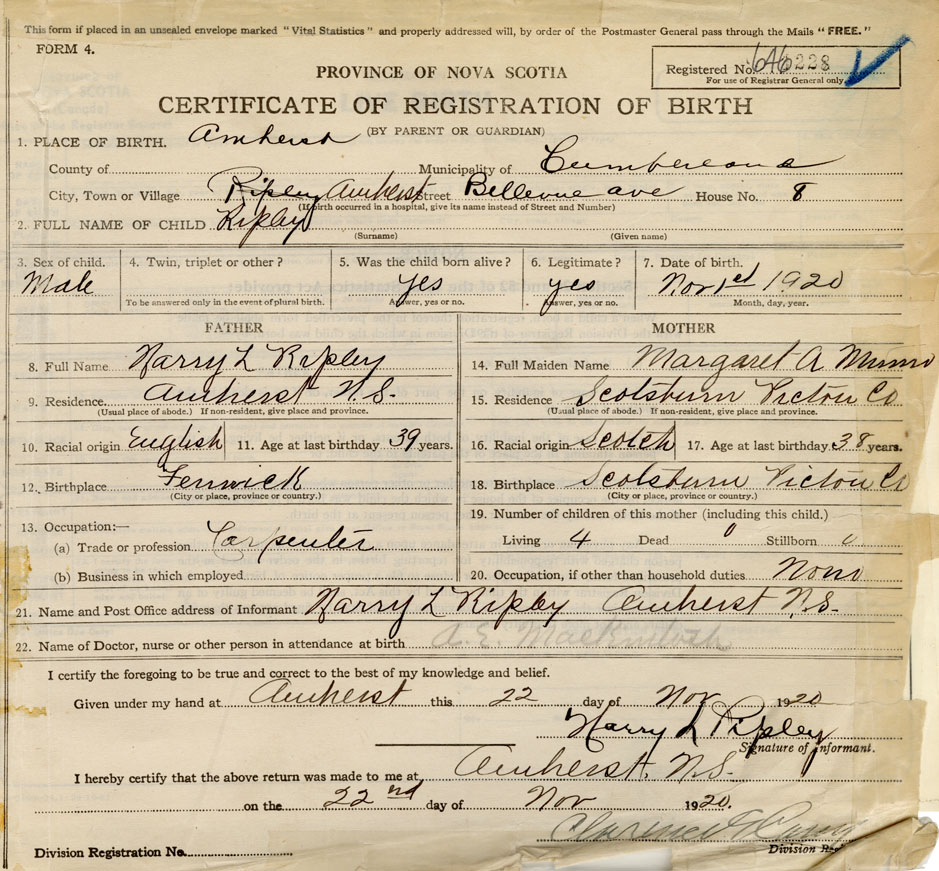 This form if placed in an unsealed envelope marked "Vital Statistics" and properly addressed will, by order of the Postmaster General pass through the Mails "FREE."
FORM 4.
Registered No. 646228
For use of Registrar General only.
PROVINCE OF NOVA SCOTIA
CERTIFICATE OF REGISTRATION OF BIRTH
(BY PARENT OR GUARDIAN)
1. PLACE OF BIRTH. Amherst
County of Municipality of Cumberland
City, Town or Village Ripley Amherst Street Bellevue ave House No. 8
(If birth occurred in a hospital, give its name instead of Street and Number)
2. FULL NAME OF CHILD Ripley
(Surname) (Given name)
3. Sex of child. 4. Twin, triplet or other? 5. Was the child born alive? 6. Legitimate? 7. Date of birth.
Male yes yes Nov 1920
To be answered only in the event of plural birth. Answer, yes or no. Answer, yes or no. Month, day, year.
FATHER
8. Full Name Harry L Ripley
9. Residence. Amherst N.S.
(Usual place of abode.) If non-resident, give place and province.
10. Racial origin English 11. Age at last birthday 39 years.
12. Birthplace Fenwick
(City or place, province or country.)
13. Occupation:—
(a) Trade or profession Carpenter
(b) Business in which employed
MOTHER
14. Full Maiden Name Margaret A Munro
15. Residence Scotsburn Pictou Co
(Usual place of abode.) If non-resident, give place and province.
16. Racial origin Scotch 17. Age at last birthday 38 years.
18. Birthplace Scotsburn Pictou Co
(City or place, province or country.)
19. Number of children of this mother (including this child.)
Living 4 Dead 0 Stillborn 0
20. Occupation, if other than household duties None
21. Name and Post Office address of Informant Harry L Ripley Amherst N.S.
22. Name of Doctor, nurse or other person in attendance at birth A. E. MacKintosh
I certify the foregoing to be true and correct to the best of my knowledge and belief.
Given under my hand at Amherst this 22 day of Nov 1920
Harry L Ripley
Signature of Informant.
I hereby certify that the above return was made to me at Amherst. N.S.
on the 22nd day of Nov 1920.
Clarence
Division Registration No. Division Reg